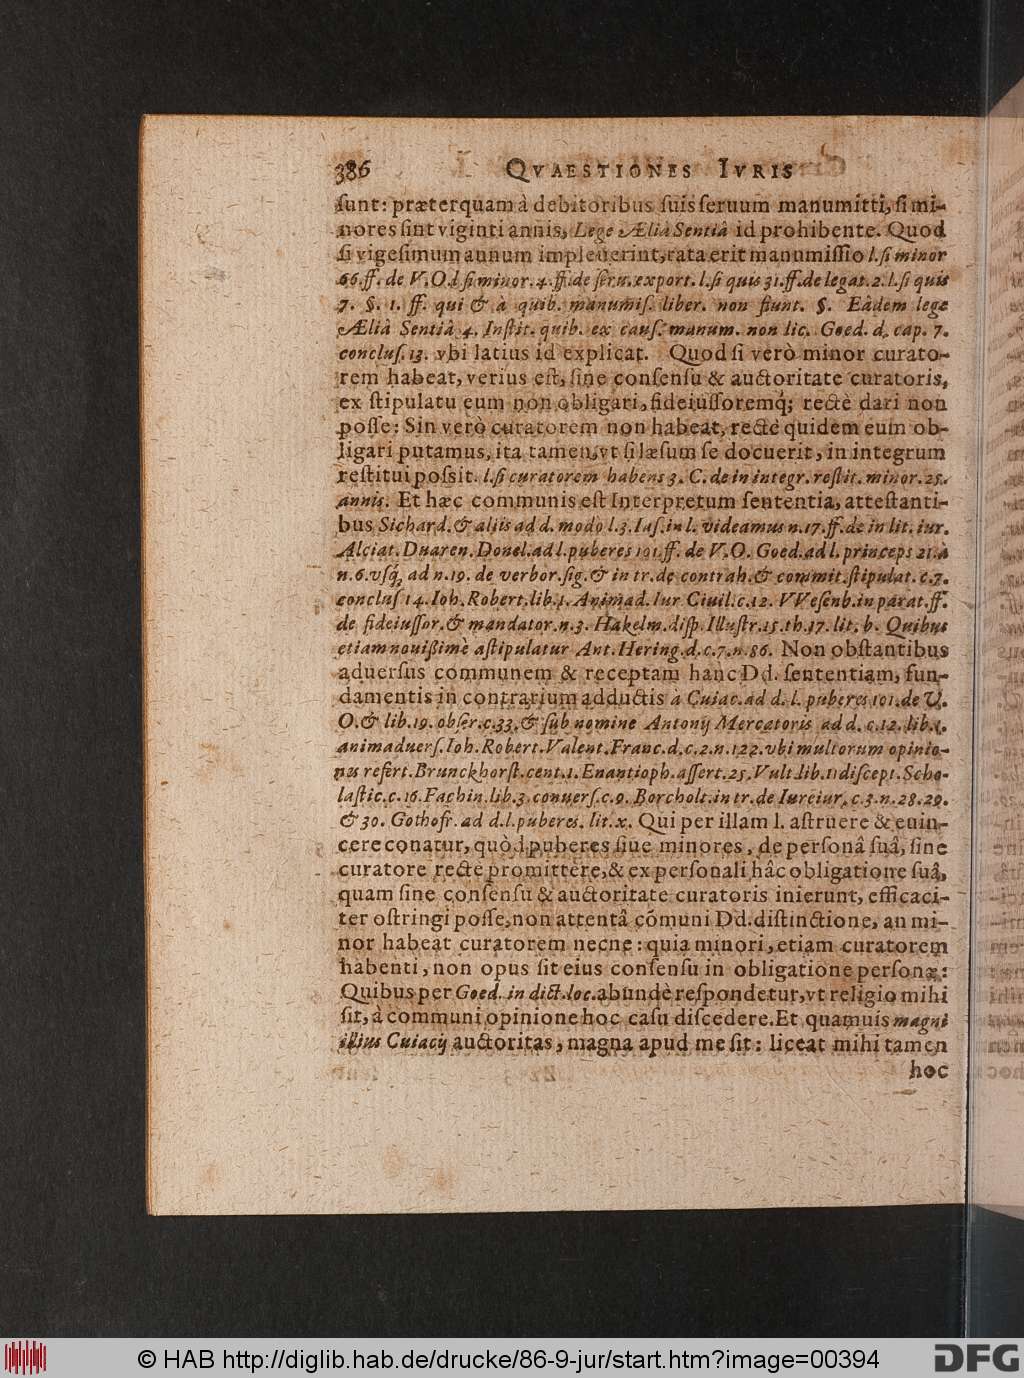 386 QVAESTIONES IVRIS
ſunt: præterquam à debitoribus ſuis ſeruum manumitti, ſi mi-
nores ſint viginti annis, Lege Æliâ Sentiâ id prohibente. Quod
ſi vigeſimum annum impleuerint, rata erit manumiſſio l. ſi minor
66. ff. de V. O. l ſi minor. 4. ff. de ſeru. export. l. ſi quis 31. ff. de legat. 2. l. ſi quis
7. §. 1. ff. qui & à quib. manumiſ. liber. non fiunt. §. Eâdem lege
Æliâ Sentiâ 4. Inſtit. quib. ex cauſ. manum. non lic. Goed. d. cap. 7.
concluſ. 13. vbi latius id explicat. Quod ſi verò minor curato-
rem habeat, verius eſt, ſine conſenſu & auctoritate curatoris,
ex ſtipulatu eum non obligari, fideiuſſoremq́; rectè dari non
poſſe: Sin verò curatorem non habeat, rectè quidem eum ob-
ligari putamus, ita tamen, vt ſi læſum ſe docuerit, in integrum
reſtitui poſsit. l. ſi curatorem habens 3. C. de in integr. reſtit. minor. 25.
annis. Et hæc communis eſt Interpretum ſententia, atteſtanti-
bus Sichard. & alijs ad d. modo l. 3. Iaſ. in l. videamus n. 17. ff. de in lit. iur.
Alciat. Duaren. Donel. ad l. puberes 101. ff. de V. O. Goed. ad l. princeps 21. à
n. 6. vſq́, ad n. 19. de verbor. ſig. & in tr. de contrah. & commit. ſtipulat. c. 7.
concluſ 14. Ioh. Robert. lib. 1. Animad. Iur Ciuil. c. 12. VVeſenb. in parat. ff.
de fideiuſſor. & mandator. n. 3. Hakelm. diſp. Illuſtr. 15. th. 17. lit. b. Quibus
etiam nouiſsimè aſtipulatur Ant. Hering. d. c. 7. n. 86. Non obſtantibus
aduerſus communem & receptam hanc Dd. ſententiam, fun-
damentis in contrarium adductis à Cuiac. ad d. l. puberes 101. de V.
O. & lib. 19. obſer. c. 33. & ſub nomine Antonij Mercatoris ad d. c. 12. lib. 1.
animaduerſ. Ioh. Robert. Valent. Franc. d. c. 2. n. 122. vbi multorum opinio-
nes refert. Brunckhorſt. cent. 1. Enantioph. aſſert. 25. Vult. lib. 1. diſcept. Scho-
laſtic. c. 16. Fachin. lib. 3. conuerſ. c. 9. Borcholt. in tr. de Iureiur. c. 3. n. 28. 29.
& 30. Gothofr. ad d. l. puberes. lit. x. Qui per illam l. aſtruere & euin-
cere conatur, quòd puberes ſiue minores, de perſonâ ſuâ, ſine
curatore rectè promittere, & ex perſonali hâc obligatione ſuâ,
quam ſine conſenſu & auctoritate curatoris inierunt, efficaci-
ter oſtringi poſſe, non attentâ cõmuni Dd. diſtinctione, an mi-
nor habeat curatorem necne: quia minori, etiam curatorem
habenti, non opus ſit eius conſenſu in obligatione perſonæ:
Quibus per Goed. in dict. loc. abundè reſpondetur, vt religio mihi
ſit, à communi opinione hoc caſu diſcedere. Et quamuis magni
illius Cuiacij auctoritas, magna apud me ſit: liceat mihi tamen
hoc
© HAB http://diglib.hab.de/drucke/86-9-jur/start.htm?image=00394
DFG